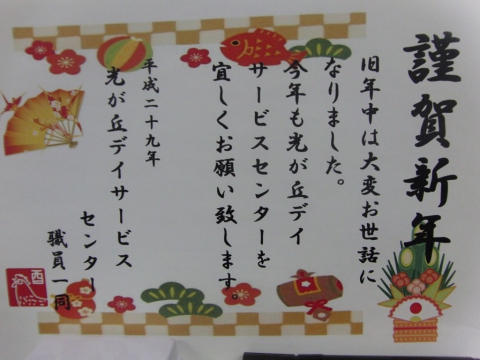 謹賀新年
旧年中は大変お世話に
なりました。
今年も光が丘デイ
サービスセンターを
宜しくお願い致します。
平成二十九年
光が丘デイサービス
センター
職員一同
酉